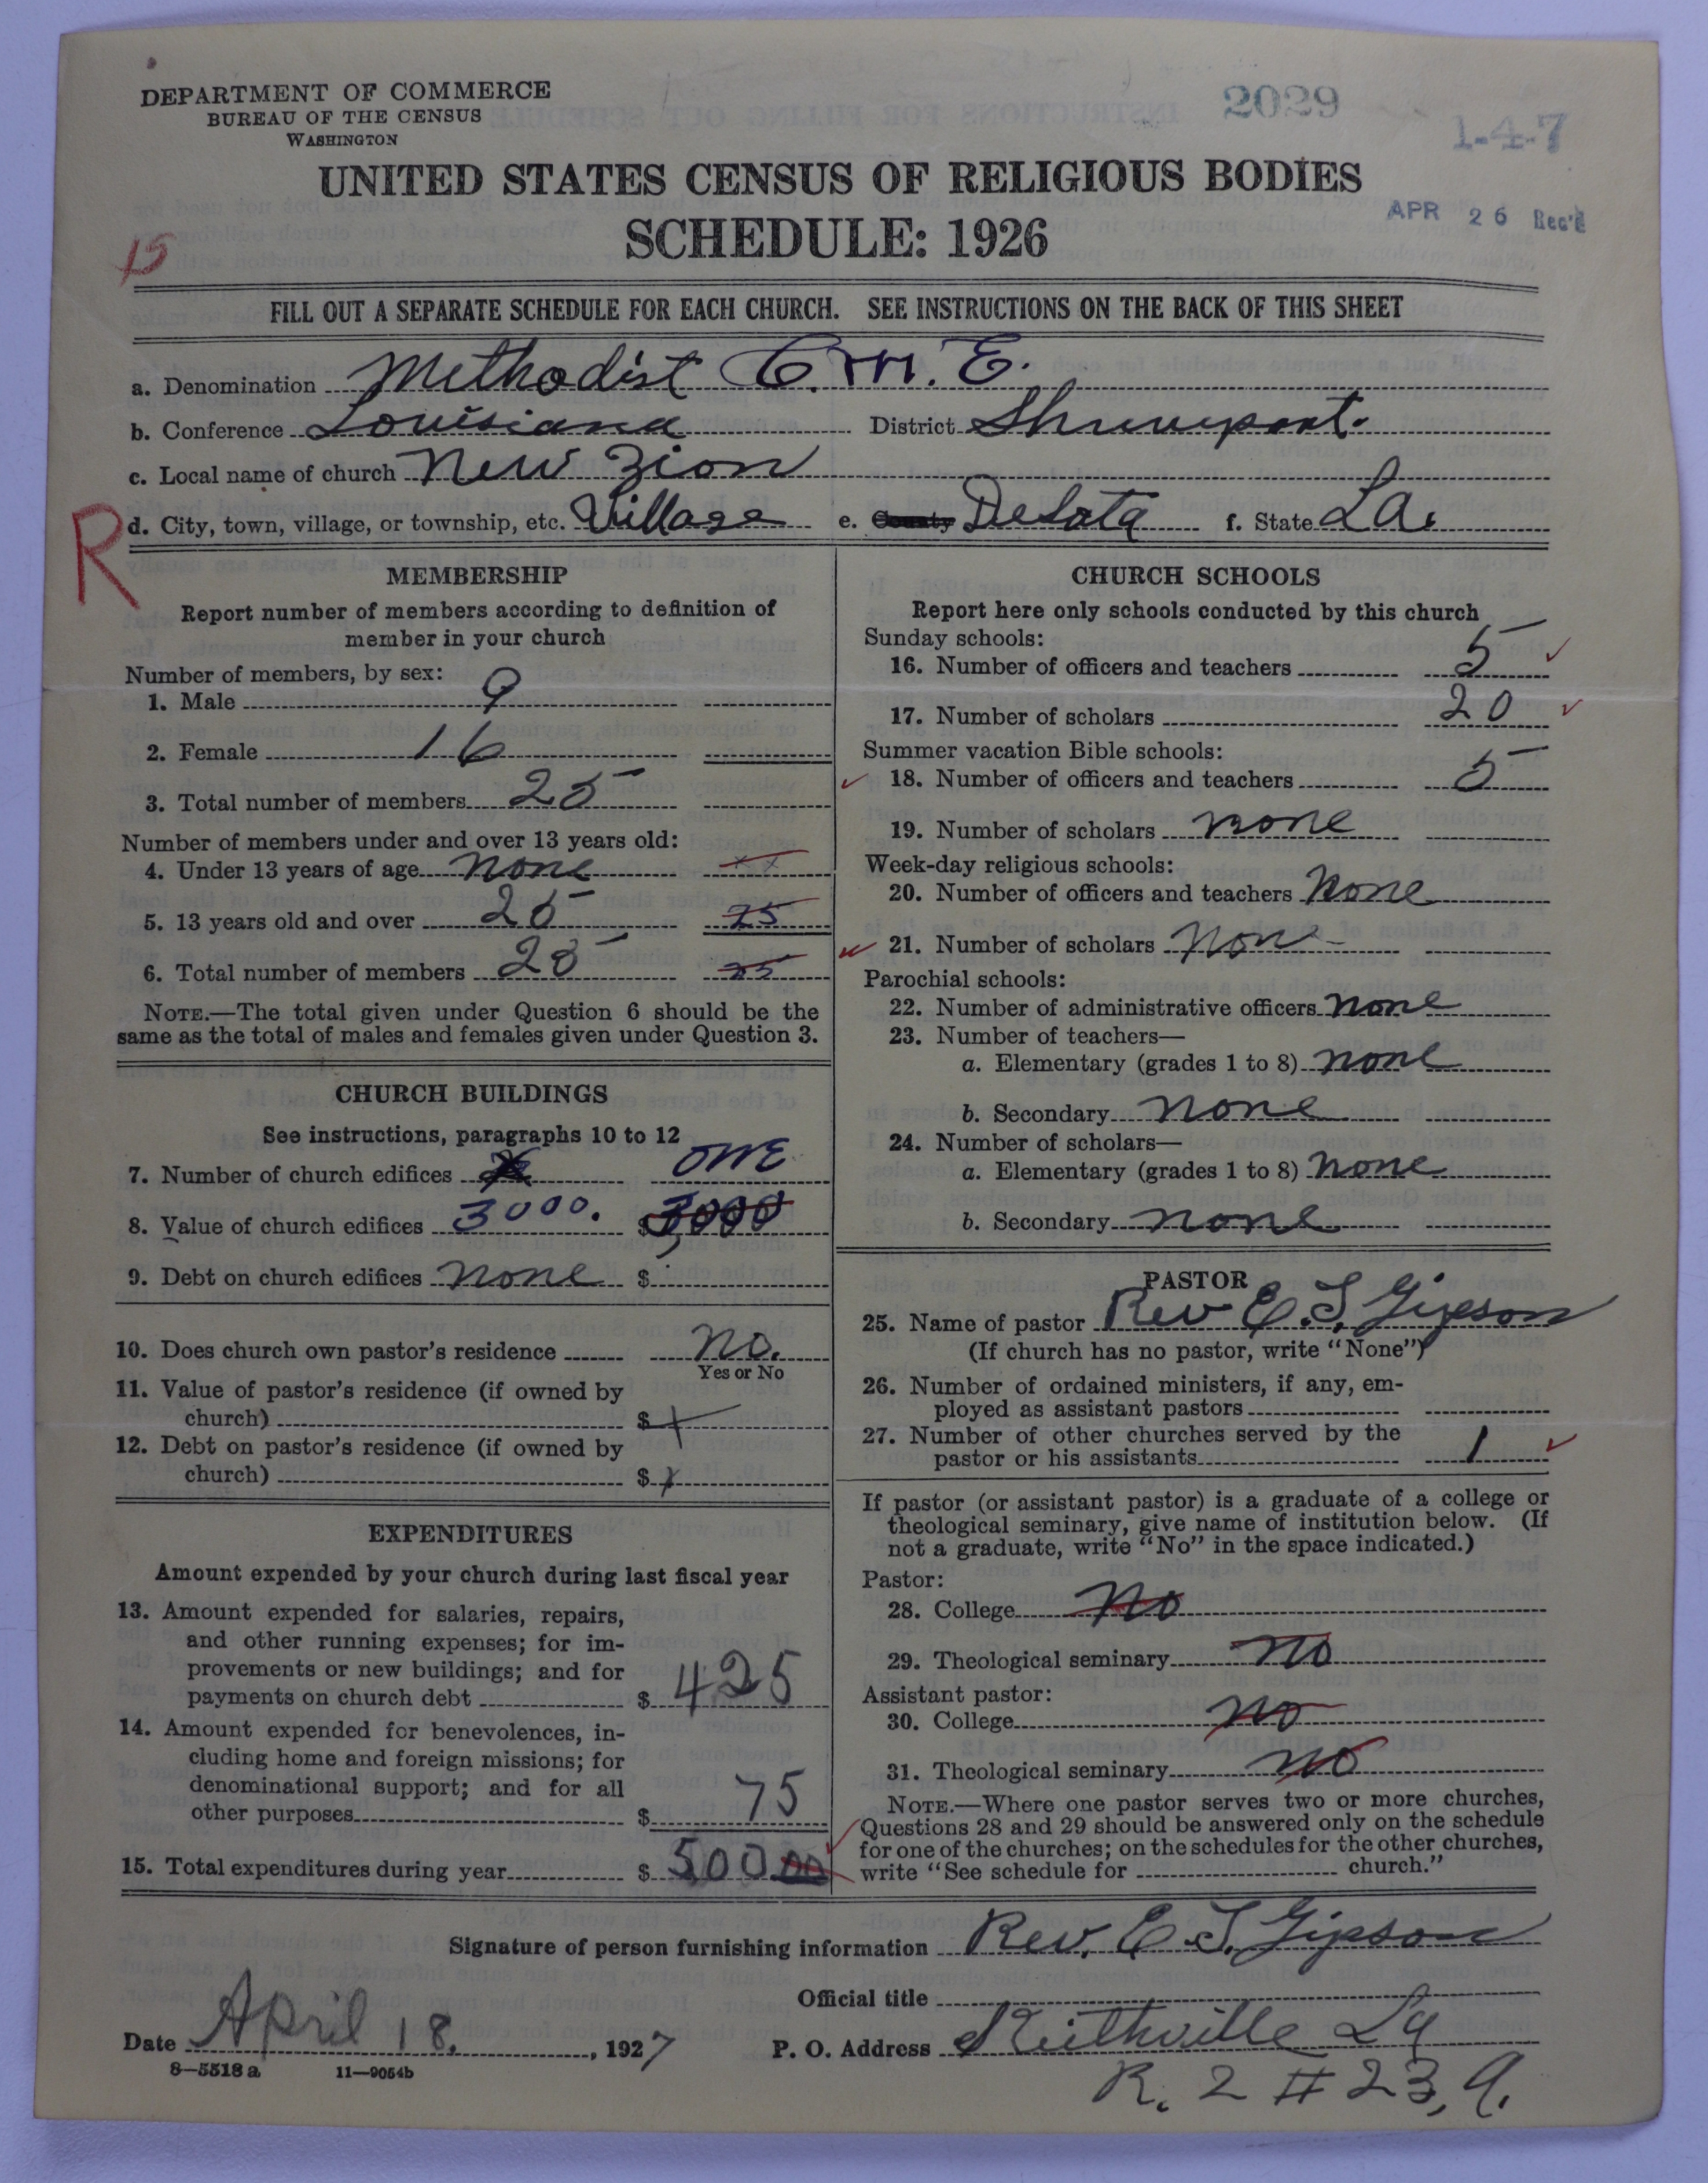 DEPARTMENT OF COMMERCE
BUREAU OF THE CENSUS
WASHINGTON
2029
1-4-7
UNITED STATES CENSUS OF RELIGIOUS BODIES
SCHEDULE: 1926
APR 26 Rec'd
15
FILL OUT A SEPARATE SCHEDULE FOR EACH CHURCH. SEE INSTRUCTIONS ON THE BACK OF THIS SHEET
a. Denomination Methodist C.M.E.
b. Conference Louisiana District Shreveport.
c. Local name of church New Zion
R
d. City, town, village, or township, etc. Village e. County DeSota f. State La.
MEMBERSHIP
Report number of members according to definition of
member in your church
Number of members, by sex:
1. Male 9
2. Female 16
3. Total number of members 25
Number of members under and over 13 years old:
4. Under 13 years of age none xx
5. 13 years old and over 25 25
6. Total number of members 25 25
NOTE.—The total given under Question 6 should be the
same as the total of males and females given under Question 3.
CHURCH BUILDINGS
See instructions, paragraphs 10 to 12
7. Number of church edifices one
8. Value of church edifices 3000. $3000
9. Debt on church edifices none $
10. Does church own pastor's residence no.
Yes or No
11. Value of pastor's residence (if owned by
church) $
12. Debt on pastor's residence (if owned by
church) $
EXPENDITURES
Amount expended by your church during last fiscal year
13. Amount expended for salaries, repairs,
and other running expenses; for im-
provements or new buildings; and for
payments on church debt $ 425
14. Amount expended for benevolences, in-
cluding home and foreign missions; for
denominational support; and for all
other purposes $ 75
15. Total expenditures during year $ 500 00
CHURCH SCHOOLS
Report here only schools conducted by this church
Sunday schools:
16. Number of officers and teachers 5
17. Number of scholars 20
Summer vacation Bible schools:
18. Number of officers and teachers 5
19. Number of scholars none
Week-day religious schools:
20. Number of officers and teachers none
21. Number of scholars non
Parochial schools:
22. Number of administrative officers none
23. Number of teachers—
a. Elementary (grades 1 to 8) none
b. Secondary none
24. Number of scholars—
a. Elementary (grades 1 to 8) none
b. Secondary none
PASTOR
25. Name of pastor Rev E. S. Gipson
(If church has no pastor, write "None")
26. Number of ordained ministers, if any, em-
ployed as assistant pastors
27. Number of other churches served by the
pastor or his assistants 1
If pastor (or assistant pastor) is a graduate of a college or
theological seminary, give name of institution below. (If
not a graduate, write "No" in the space indicated.)
Pastor:
28. College no
29. Theological seminary no
Assistant pastor:
30. College no
31. Theological seminary no
NOTE.—Where one pastor serves two or more churches,
Questions 28 and 29 should be answered only on the schedule
for one of the churches; on the schedules for the other churches,
write "See schedule for church."
Signature of person furnishing information Rev. E. S. Gipson
Official title
Date April 18, 1927 P. O. Address Keithville La
8—5518a 11—9054b
R. 2 # 23, A.